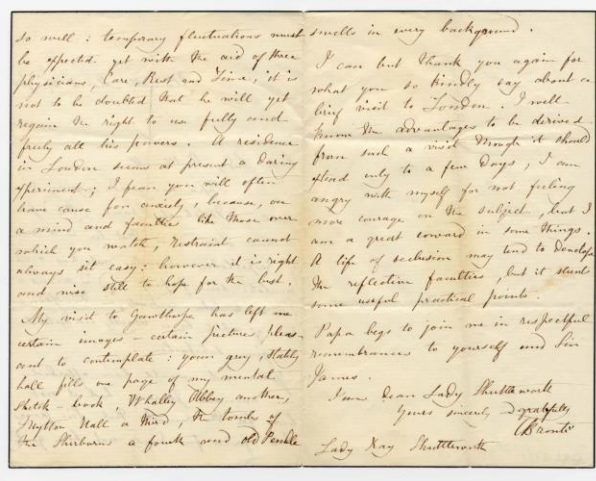 so well: temporary fluctuations must
be expected. yet with the aid of three
physicians, Care, Rest and Time, it is
not to be doubted that he will yet
regain the right to use fully and
freely all his powers. A residence
in London seems at present a daring
experiment; I fear you will often
have cause for anxiety, because, on
a mind and faculties like those over
which you watch, restraint cannot
always sit easy: however it is right
and wise still to hope for the best.
My visit to Gawthorpe has left me
certain images - certain pictures pleas-
ant to contemplate: your grey, stately
hall fills one page of my mental
sketch-book, Whalley Abbey another,
Mytton Hall a third, the tombs of
the Sherburns a fourth and old Pendle
smells in every background.
I can but thank you again for
what you so kindly say about a
brief visit to London. I well
know the advantages to be derived
from such a visit though it should
extend only to a few days, I am
angry with myself for not feeling
more courage on the subject, but I
am a great coward in some things.
A life of seclusion may tend to develope
the reflective faculties, but it stunts
some useful practical points.
Papa begs to join me in respectful
remembrances to yourself and Sir
James.
I am dear Lady Shuttleworth
Yours sincerely & gratefully
C Brontë
Lady Kay Shuttleworth